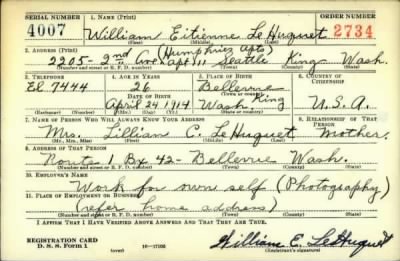 SERIAL NUMBER 1. NAME (Print) ORDER NUMBER
4007 William Eitienne LeHuquet 2734
(First) (Middle) (Last)
2. ADDRESS (Print) (Humphriez Apts)
2205-2nd Ave apt 111 Seattle King Wash.
(Number and street or R. F. D. number) (Town) (County) (State)
3. TELEPHONE 4. AGE IN YEARS 5. PLACE OF BIRTH 6. COUNTRY OF CITIZENSHIP
El 7444 26 Bellevue
DATE OF BIRTH (Town or county)
April 24 1914 Wash. King U.S.A.
(Exchange) (Number) (Mo.) (Day) (Yr.) (State or country)
7. NAME OF PERSON WHO WILL ALWAYS KNOW YOUR ADDRESS 8. RELATIONSHIP OF THAT PERSON
Mrs. Lillian C. LeHuquet Mother.
(Mr., Mrs., Miss) (First) (Middle) (Last)
9. ADDRESS OF THAT PERSON
Route 1 Bx 42- Bellevue Wash.
(Number and street or R. F. D. number) (Town) (County) (State)
10. EMPLOYER'S NAME
Work for own self (Photography)
11. PLACE OF EMPLOYMENT OR BUSINESS
(refer home address)
(Number and street or R. F. D. number) (Town) (County) (State)
I AFFIRM THAT I HAVE VERIFIED ABOVE ANSWERS AND THAT THEY ARE TRUE.
REGISTRATION CARD
D. S. S. Form 1 (over) 16-17105 William E. LeHuquet
(Registrant's signature)